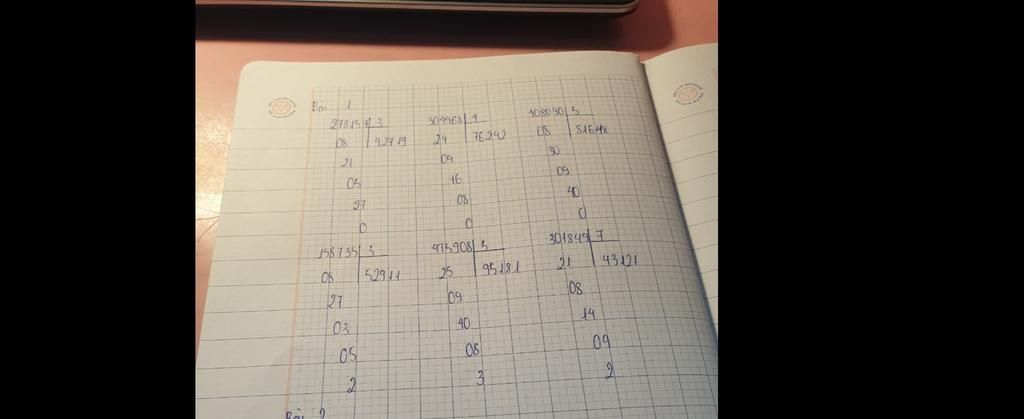 Bài 1
278157 3 304968 4 408090 5
08 92719 24 76242 08 81648
21 09 30
05 16 09
27 08 40
0 0 0
158735 3 475908 5 301849 7
08 52911 25 95181 21 43121
27 09 08
03 40 14
05 08 09
2 3 2
Bài 2